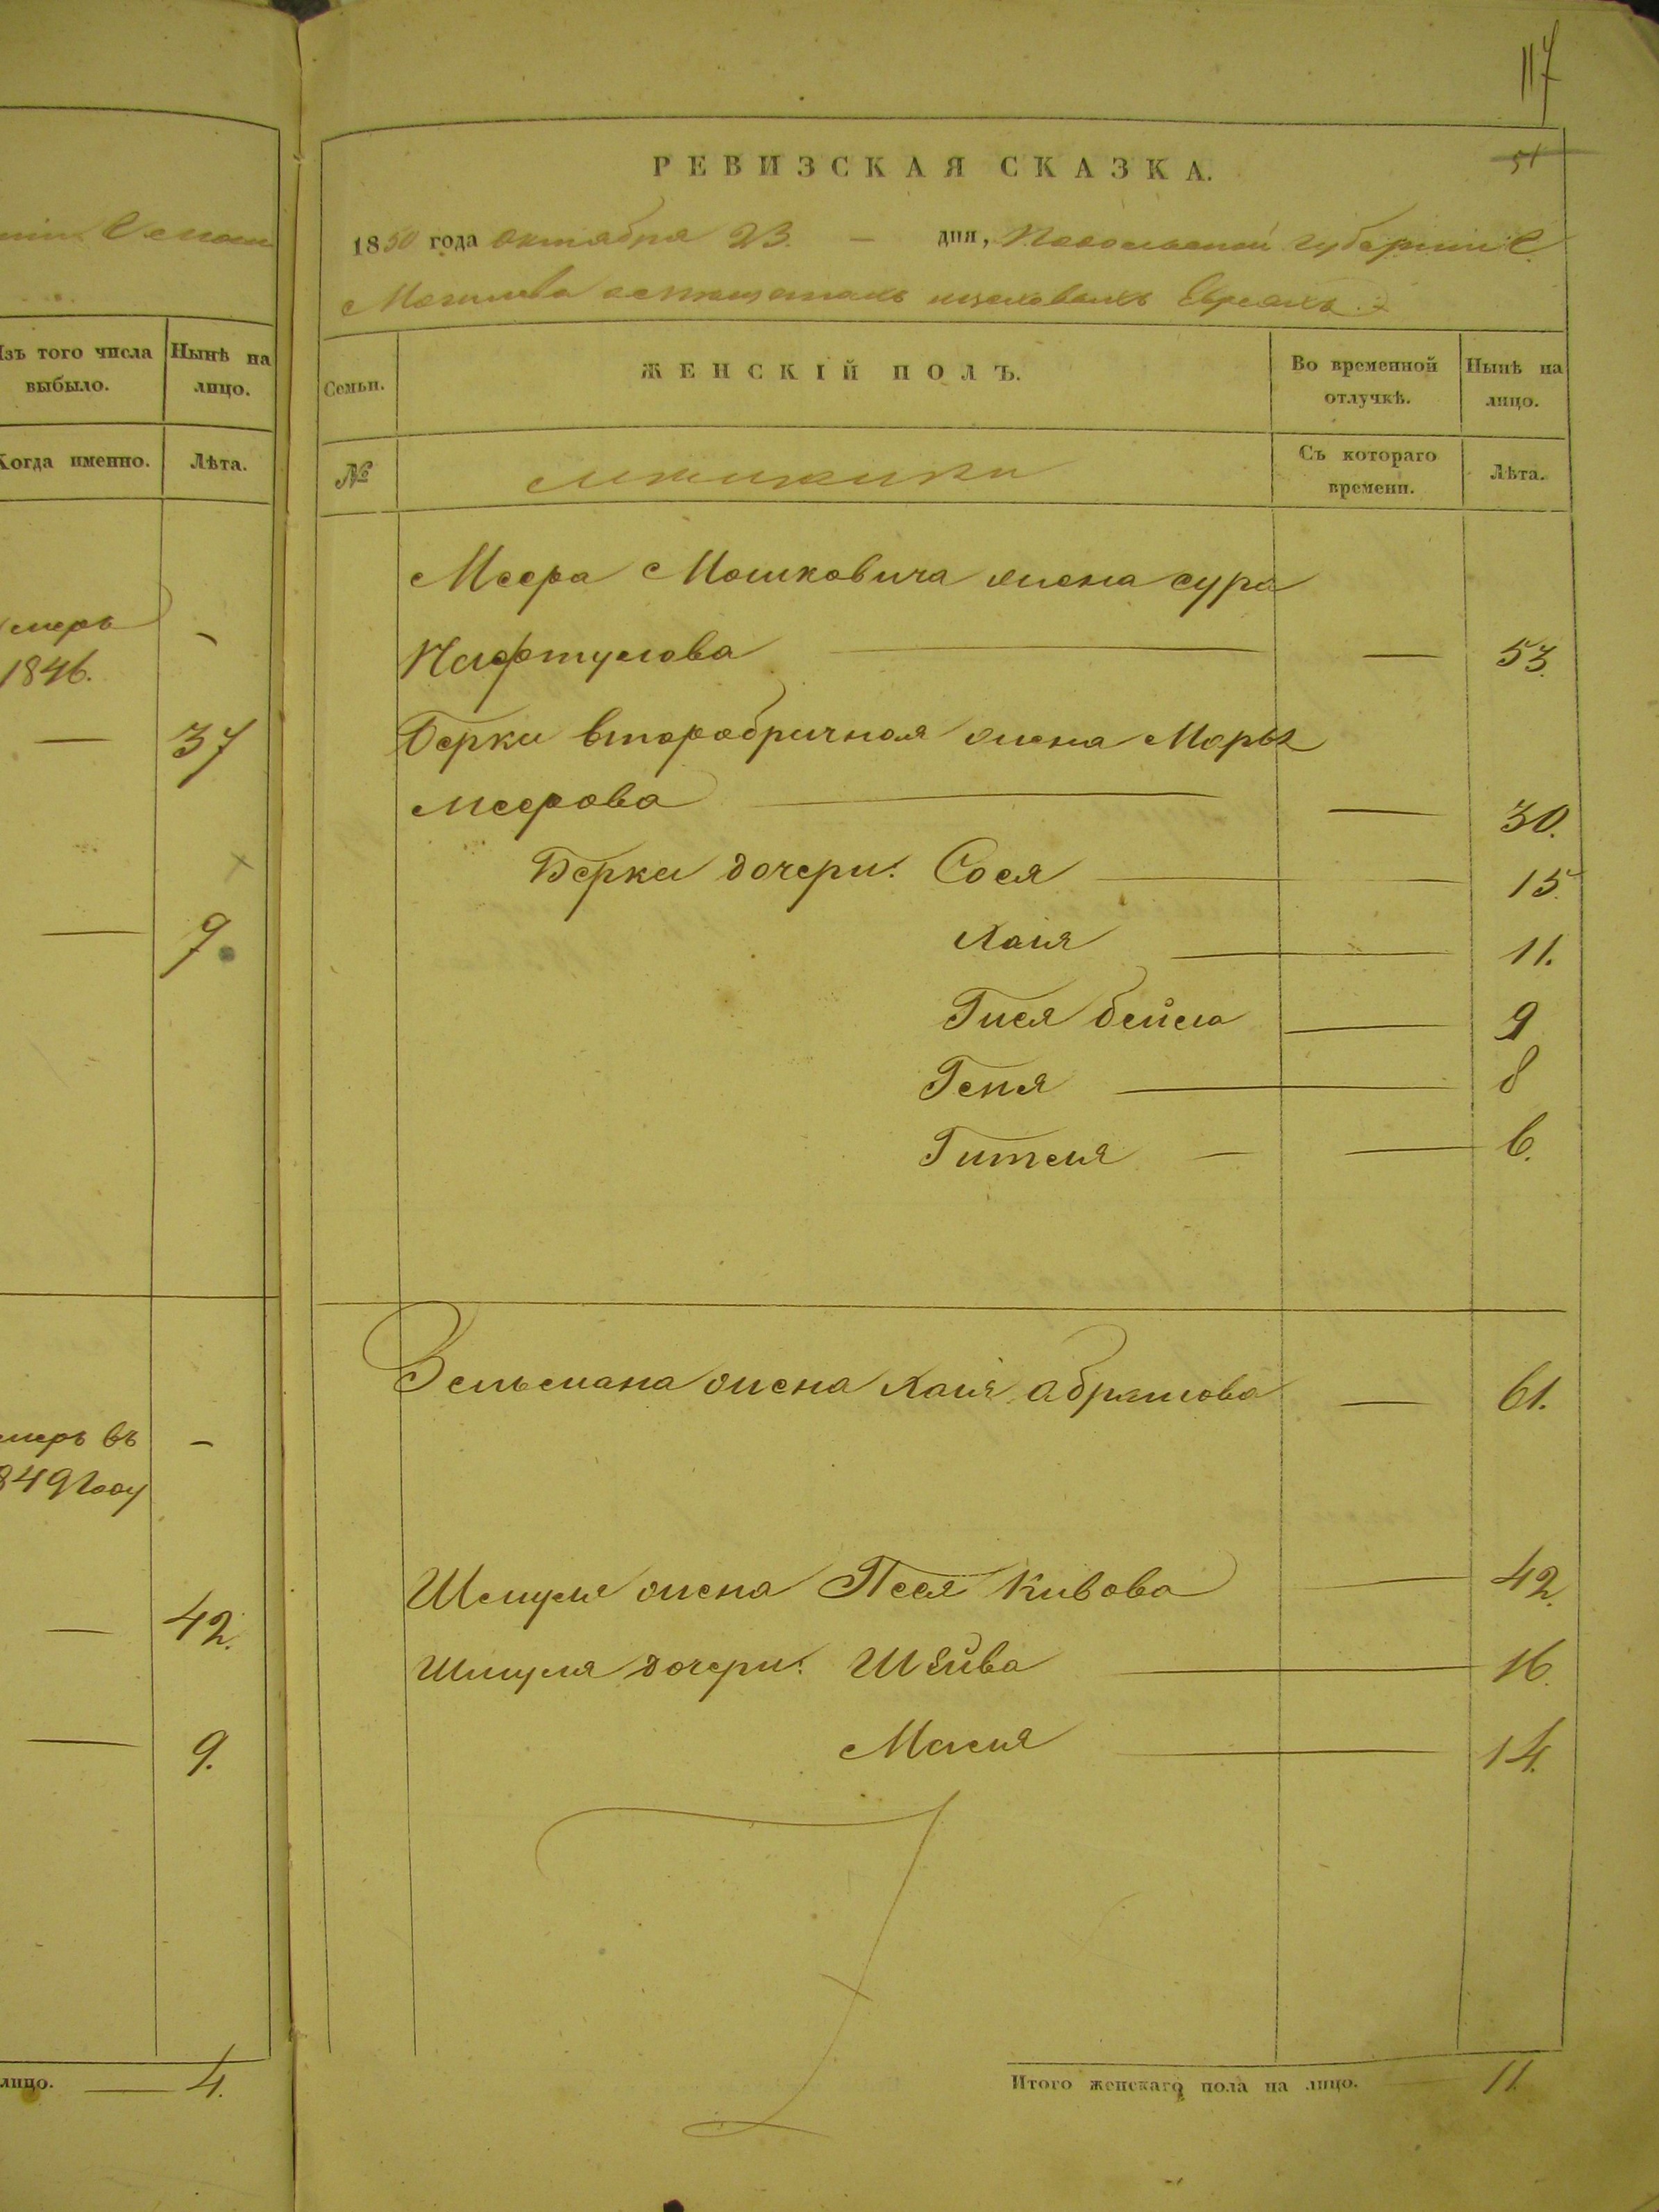 117
РЕВИЗСКАЯ СКАЗКА.
51
1850 года октября 23. — дня, Подольской губернии
Могилева о мещанахъ Евреахъ
Изъ того числа выбыло.
Нынѣ на лицо.
Когда именно.
Лѣта.
умеръ
1846.
— 37
— 9.
умеръ въ —
1849 году
— 42.
— 9.
лицо. — 4.
Семьи.
ЖЕНСКІЙ ПОЛЪ.
Во временной отлучкѣ.
Нынѣ на лицо.
№
Съ котораго времени.
Лѣта.
Меера Мошковича жена сура
Нафтулова — — 53.
Берки второбрачная жена
меерова — — 30.
Берки дочери: Сося — 15.
Хаия — 11.
Гися бейла — 9
Геня — 8
Гителя — — 6.
Зельмана жена Хаия абрамова — 61.
Шмуля жена Песя Кивова — 42.
Шмуля дочери: Шейва — 16.
Маля — 14.
Итого женскаго пола на лицо. 11.